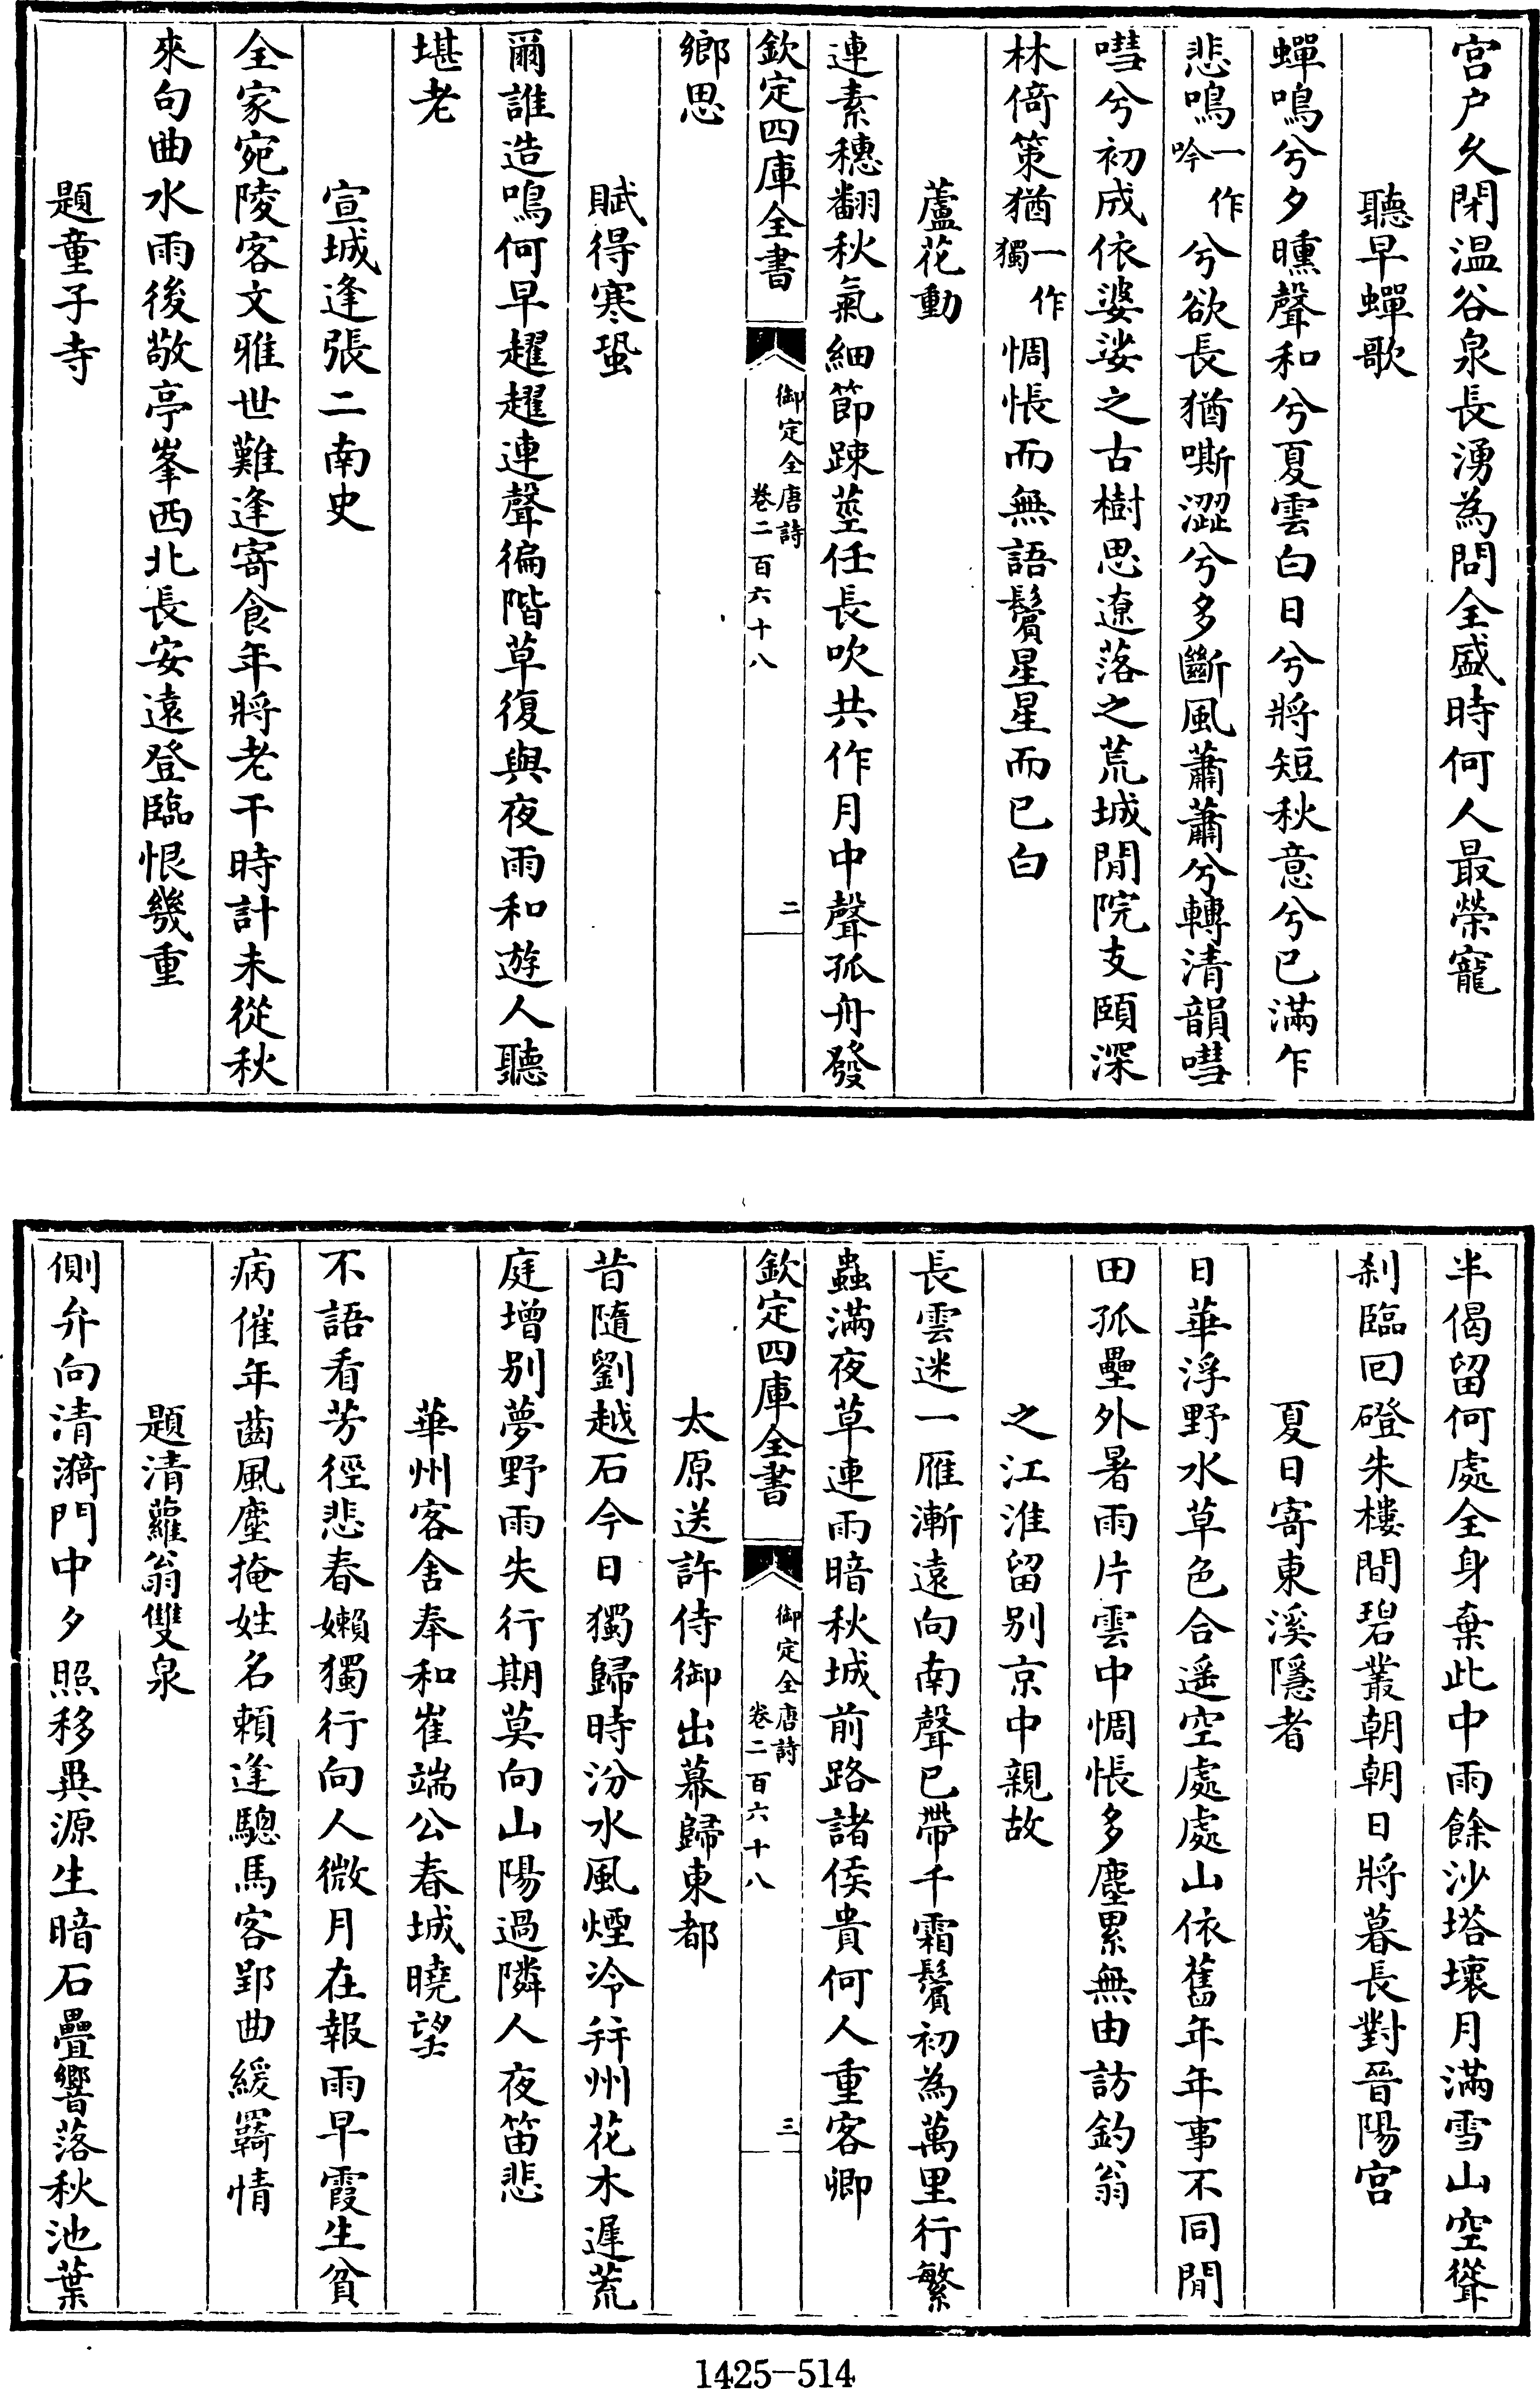 宮户久閉温谷泉長湧為問全盛時何人最榮寵
聽早蟬歌
蟬鳴兮夕曛聲和兮夏雲白日兮將短秋意兮已滿乍
悲鳴一作吟兮欲長猶嘶澀兮多斷風蕭蕭兮轉清韻嘒
嘒兮初成依婆娑之古樹思遼落之荒城閒院支頤深
林倚策猶一作獨惆悵而無語鬢星星而已白
蘆花動
連素穗翻秋氣細節踈莖任長吹共作月中聲孤舟發
欽定四庫全書
御定全唐詩
卷二百六十八
二
鄉思
賦得寒蛩
爾誰造鳴何早趯趯連聲徧階草復與夜雨和遊人聽
堪老
宣城逢張二南史
全家宛陵客文雅世難逢寄食年將老干時計未從秋
來句曲水雨後敬亭峯西北長安遠登臨恨幾重
題童子寺
半偈留何處全身棄此中雨餘沙塔壞月滿雪山空聳
刹臨回磴朱樓間碧叢朝朝日將暮長對晉陽宮
夏日寄東溪隱者
日華浮野水草色合遥空處處山依舊年年事不同閒
田孤壘外暑雨片雲中惆悵多塵累無由訪釣翁
之江淮留别京中親故
長雲迷一雁漸遠向南聲已帶千霜鬢初為萬里行繁
蟲滿夜草連雨暗秋城前路諸侯貴何人重客卿
欽定四庫全書
御定全唐詩
卷二百六十八
三
太原送許侍御出幕歸東都
昔隨劉越石今日獨歸時汾水風煙冷并州花木遲荒
庭增别夢野雨失行期莫向山陽過隣人夜笛悲
華州客舍奉和崔端公春城曉望
不語看芳徑悲春嬾獨行向人微月在報雨早霞生貧
病催年齒風塵掩姓名賴逢驄馬客郢曲緩羈情
題清蘿翁雙泉
側弁向清漪門中夕照移異源生暗石疊響落秋池葉
1425-514